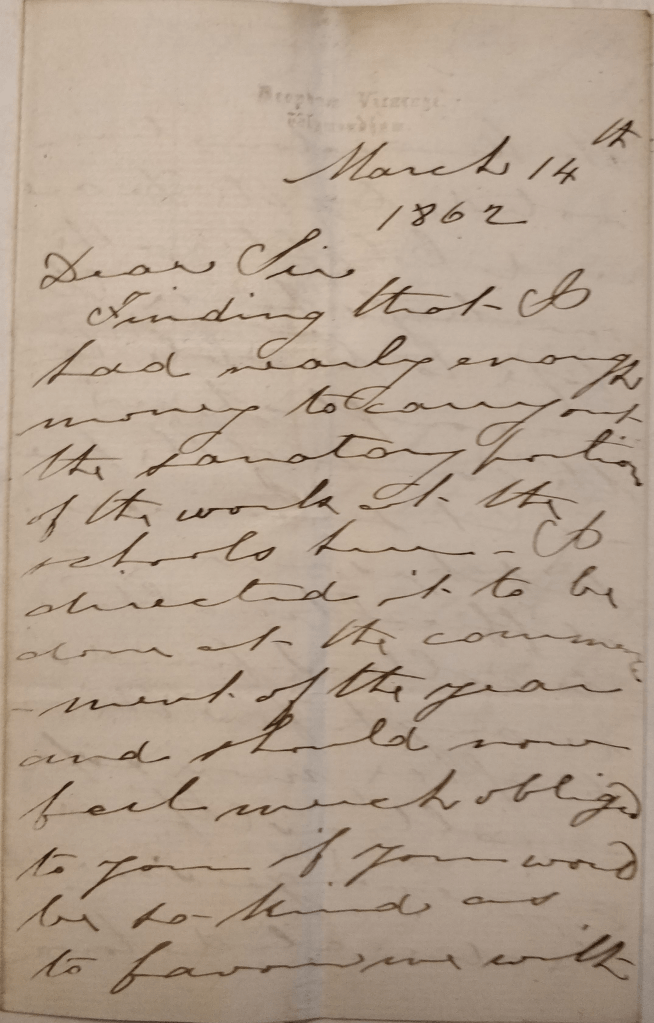 Vicarage
March 14th
1862
Dear Sir
Finding that I
had nearly enough
money to carry out
the sanatory portion
of the work at the
schools here - I
directed it to be
done at the commence
-ment of the year
and should now
feel much obliged
to you if you would
be so kind as
to favour me with